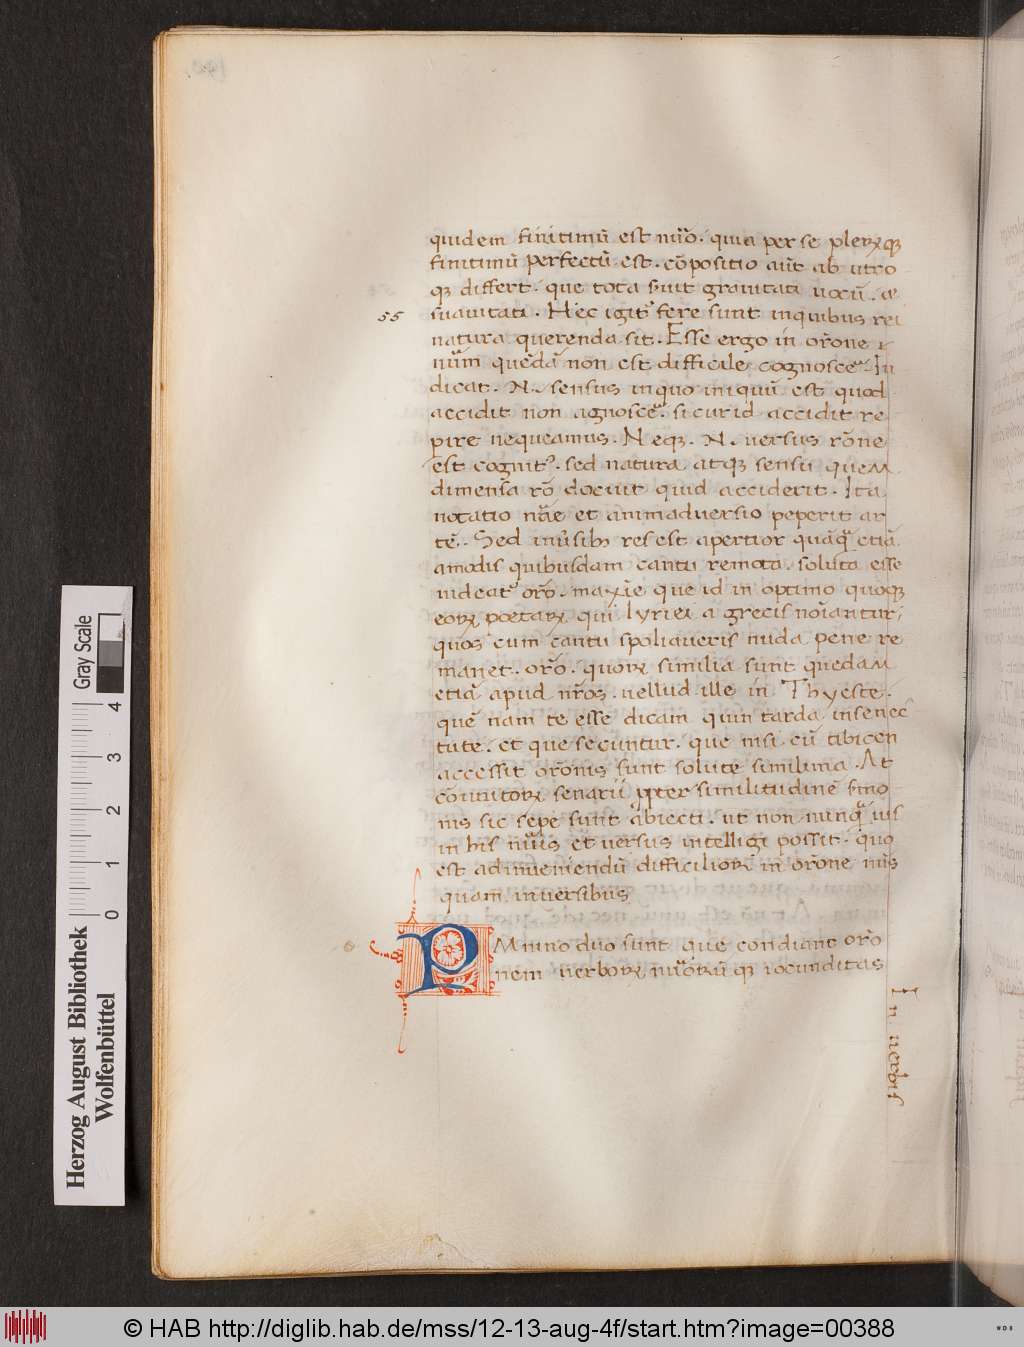 quidem finitimū est nūo. quia per se plerꝝqꝫ
finitimū perfectū est. cōpositio aūt ab utro
qꝫ differt. que tota suit grauitati uocū. &
55 suauitati. Hec igit᷑ fere sunt inquibus rei
natura querenda sit. Esse ergo in orōne
nūm quedā non est difficile cognosce᷑. In
dicat. N. sensus inquo iniquū est quod
accidit non agnosce᷑. si cur id accidit re
pire nequeamus. Neqꝫ. N. uersus rōne
est cognit᷒. sed natura atqꝫ sensu quem
dimensa rō docuit quid acciderit. Ita
notatio nāe et animaduersio peperit ar
tē. Sed inūsibꝫ res est apertior quāq̄ etiā
amodis quibusdam cantu remota. soluta esse
uideat᷑ orō. maxīe que id in optimo quoqꝫ
eoꝝ poetaꝝ qui lyrici a grecis noīantur;
quos cum cantu spoliaueris nuda pene re
manet. orō. quoꝝ similia sunt quedam
etiā apud nr̄os. uellud ille in Thyeste.
quē nam te esse dicam quin tarda insenec
tute. et que secuntur. que nisi cū tibicen
accessit orōnis sunt solute simillima. At
cōmitoꝝ senarii ꝓpter similitudinē smo
nis sic sepe sunt abiecti. ut non nunq̄ uis
in his nūis et uersus intelligi possit. quo
est adinueniendū difficilioꝝ in orōne nūs
quam inuersibus
PMnino duo sunt que condiant orō
nem uerboꝝ nūorū qꝫ iocunditas
In uerbis
Gray Scale
0 1 2 3 4
Herzog August Bibliothek
Wolfenbüttel
© HAB http://diglib.hab.de/mss/12-13-aug-4f/start.htm?image=00388